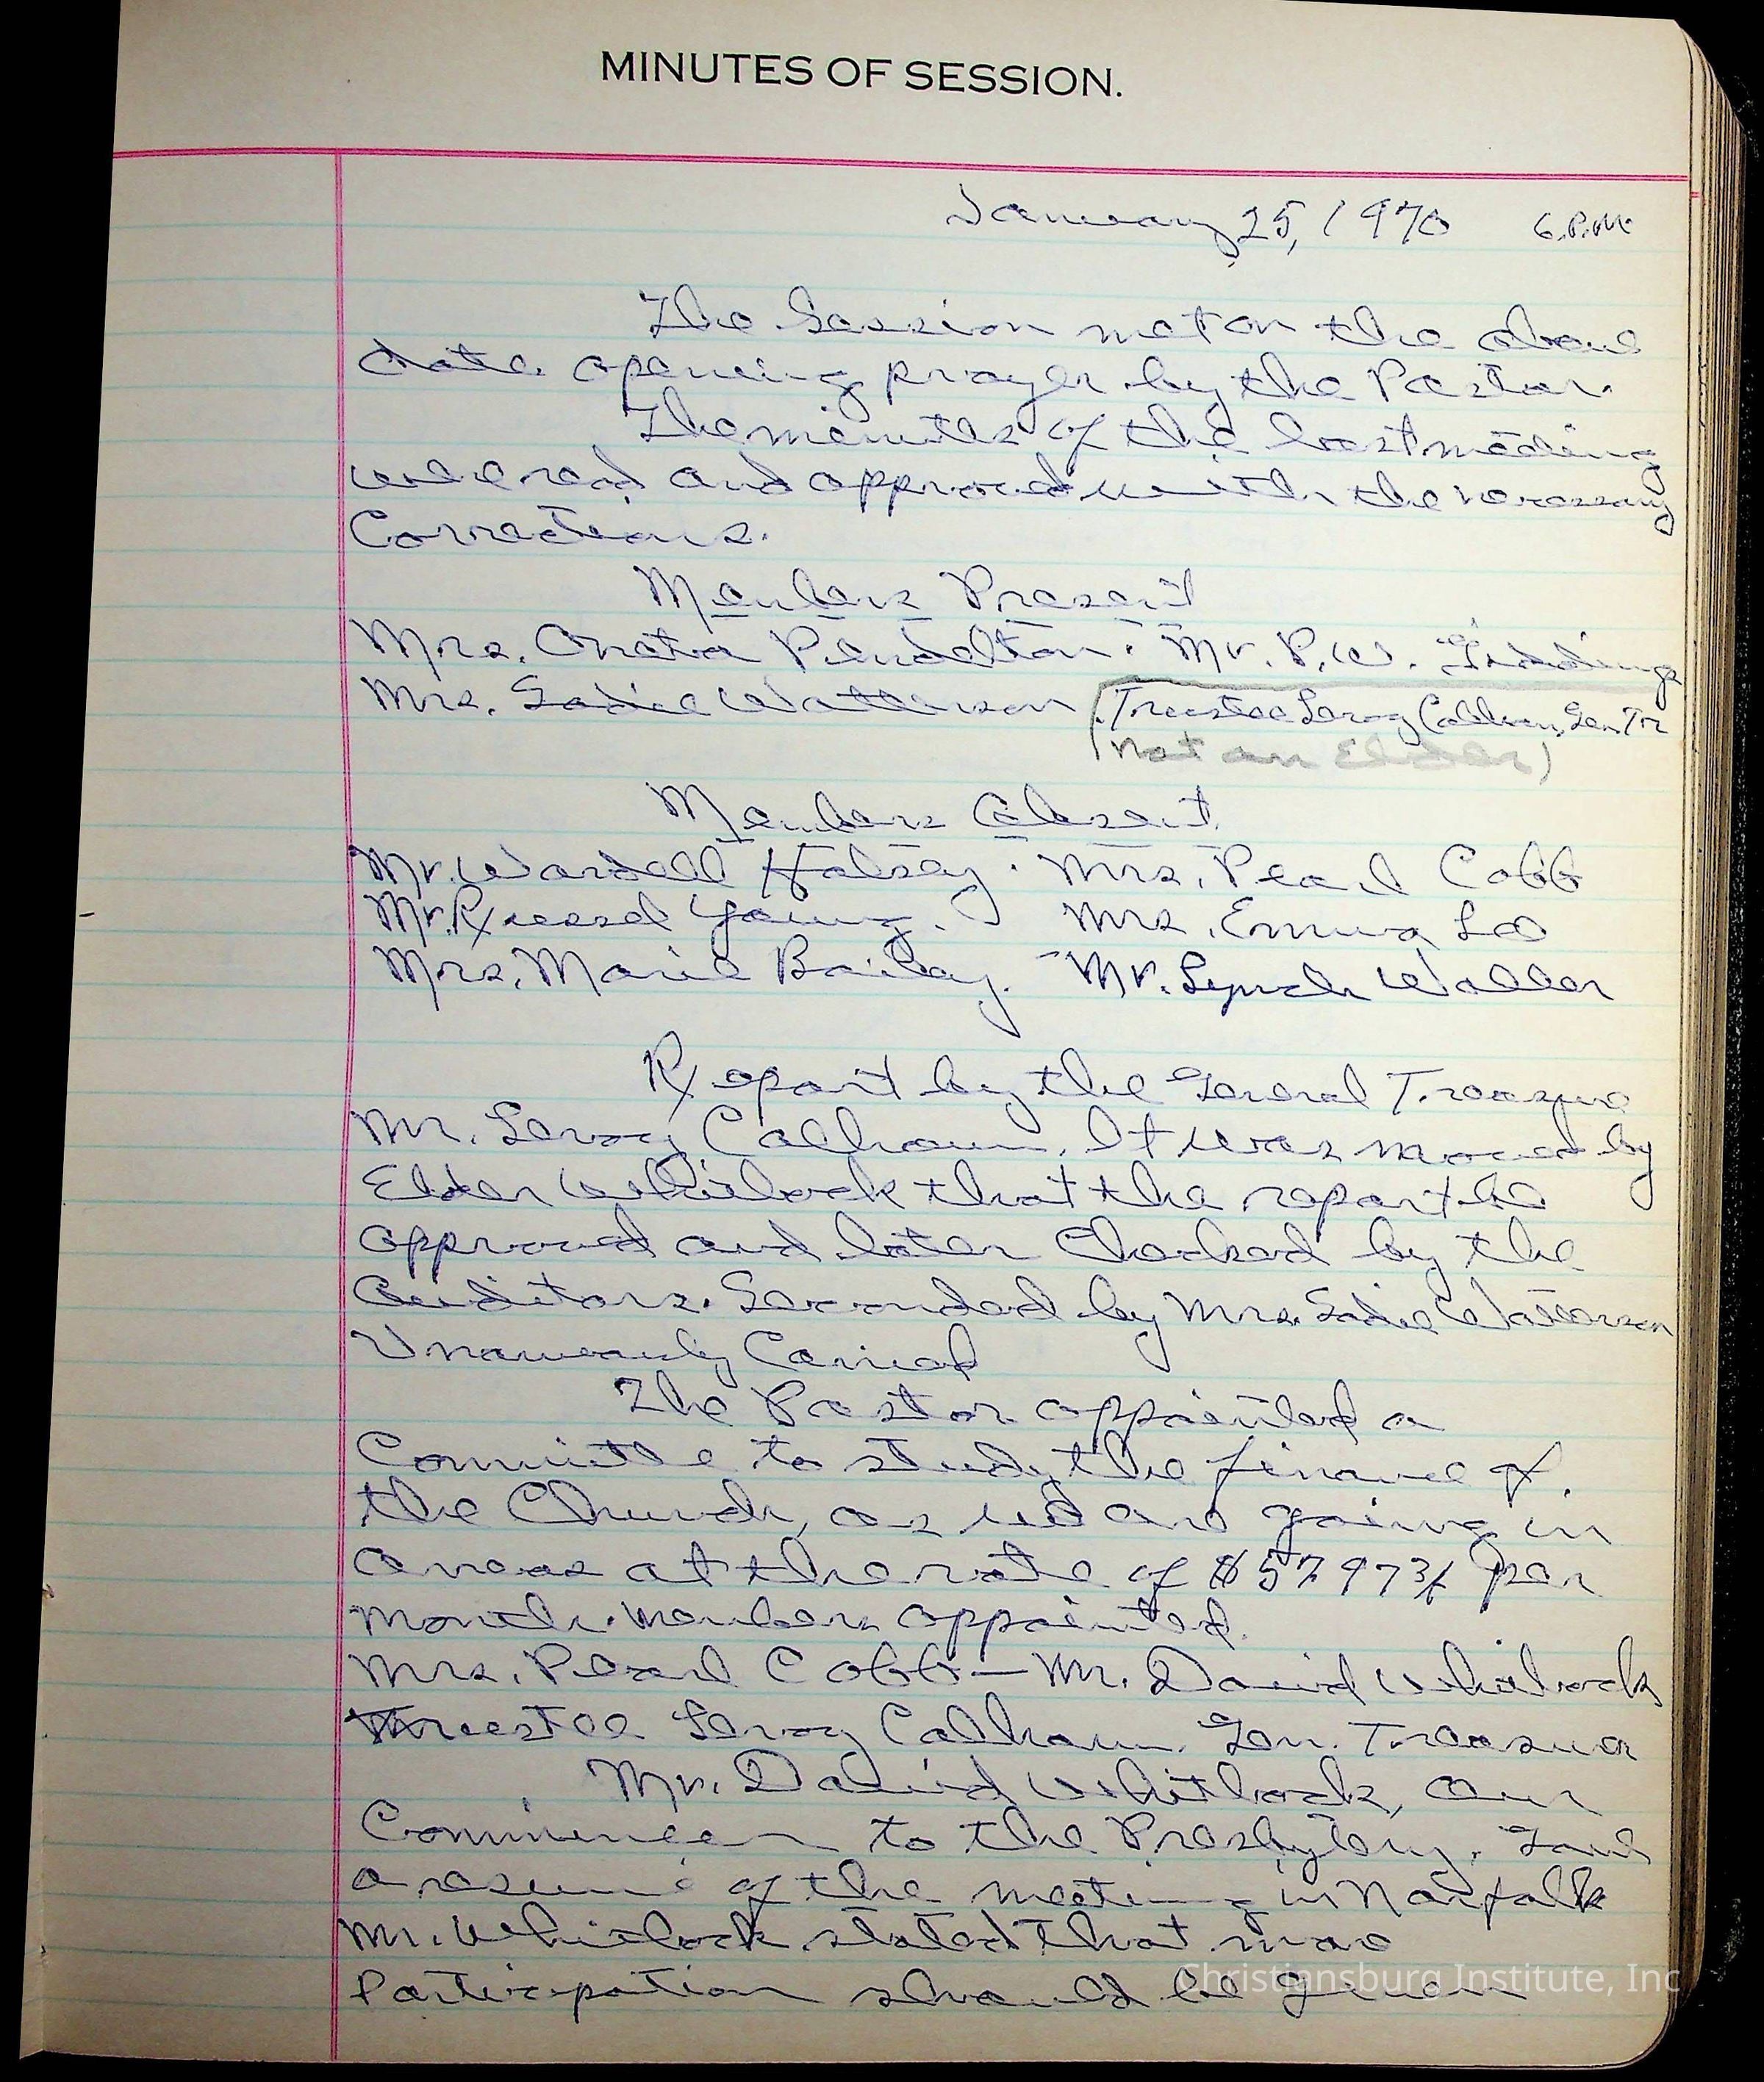 MINUTES OF SESSION.
January 25, 1970 6 P.M.
The Session met on the above
date. opening prayer by the Pastor.
The minutes of the last meeting
were read and approved with the necessary
Corrections.
Members Present
Mrs. Oneta Pendelton. Mr. P.W. Giddings
Mrs. Sadie Watterson (Trustee Leroy Calhoun, Gen. Tr
not an Elder)
Members Absent
Mr. Wardell Halsey. Mrs. Pearl Cobb
Mr. Russel Young. Mrs. Emma Lee
Mrs. Marie Bailey. Mr. Lynch Waller
Report by the General Treasure
Mr. Leroy Calhoun. It was moved by
Elder Whitlock that the report be
approved and later Checked by the
Auditors. Seconded by Mrs. Sadie Watterson
Carried
The Pastor appointed a
Committe to study the finance of
the Church, as we are going in
at the rate of per
month. Members appointed.
Mrs. Pearl Cobb — Mr. David Whitlock
Trustee Leroy Calhoun. Gen. Treasurer
Mr. David Whitlock, Our
to the Presbytery. Gave
a resume of the meeting in Norfolk
Mr. Whitlock stated that more
Participation should be given
Christiansburg Institute, Inc